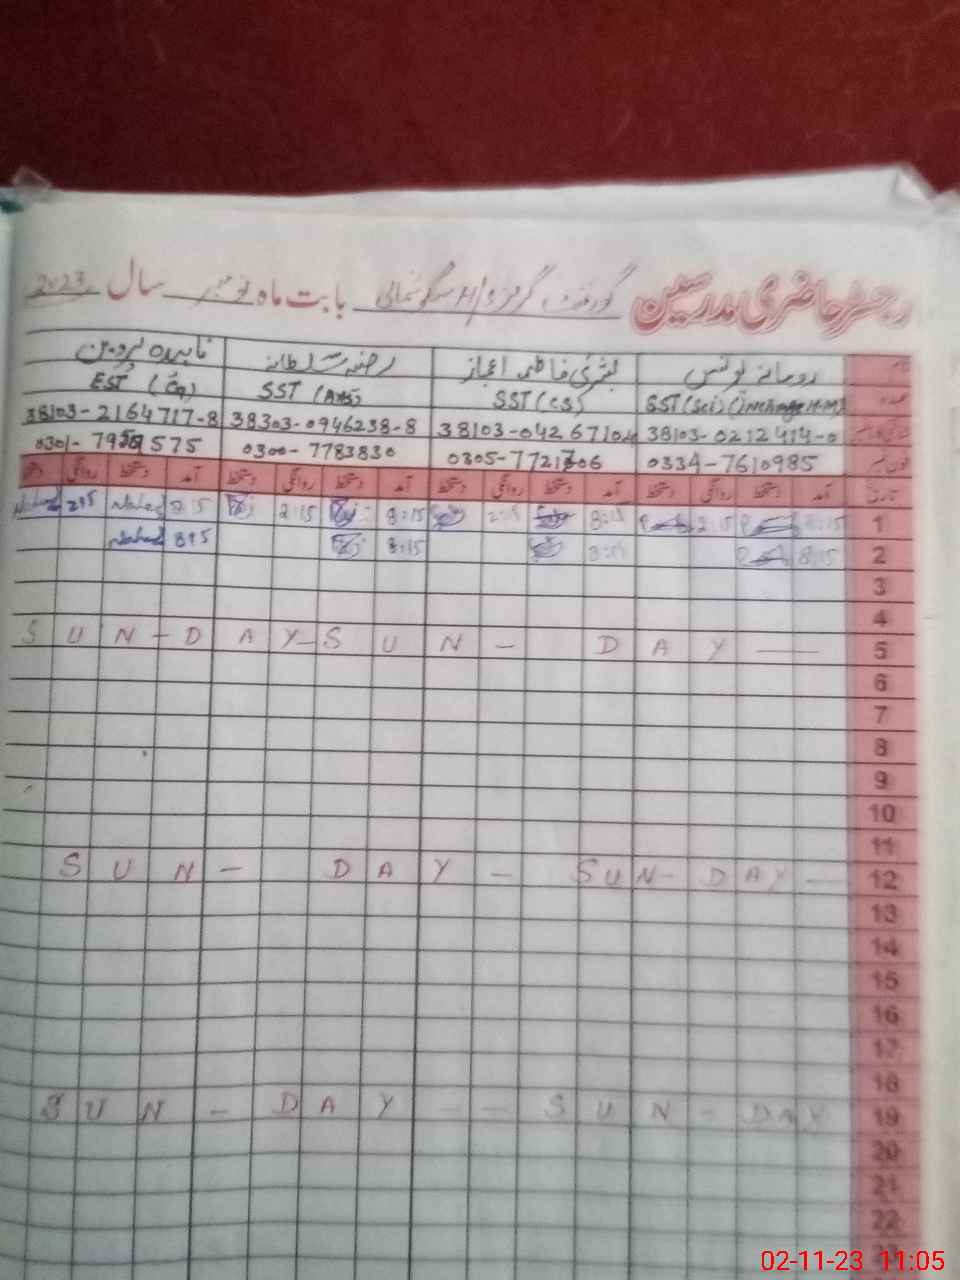 رجسٹر حاضری مدرسین گورنمنٹ گرلز بابت ماہ نومبر سال 2023
رومانہ یونس بشریٰ فاطمہ اعجاز رضیہ سلطانہ ناہیدہ پروین
SST (Sci) (Incharge H.M) SST (CS) SST (Arts) EST
38103-0212414-0 38103-0426710 38303-0946238-8 38103-2164717-8
0334-7610985 0305-7721706 0300-7783830 0301-7959575
تاریخ آمد دستخط روانگی دستخط آمد دستخط روانگی دستخط آمد دستخط روانگی دستخط آمد دستخط روانگی دستخط
1 8:15 2:15 8:15 8:15 2:15 8:15 Nahed 2:15 Nahed
2 8:15 8:15 8:15 8:15 Nahed
3
4
5 SUN-DAY-SUN-DAY
6
7
8
9
10
11
12 SUN-DAY-SUN-DAY-
13
14
15
16
17
18
19 SUN-DAY--SUN-DAY
20
21
22
02-11-23 11:05